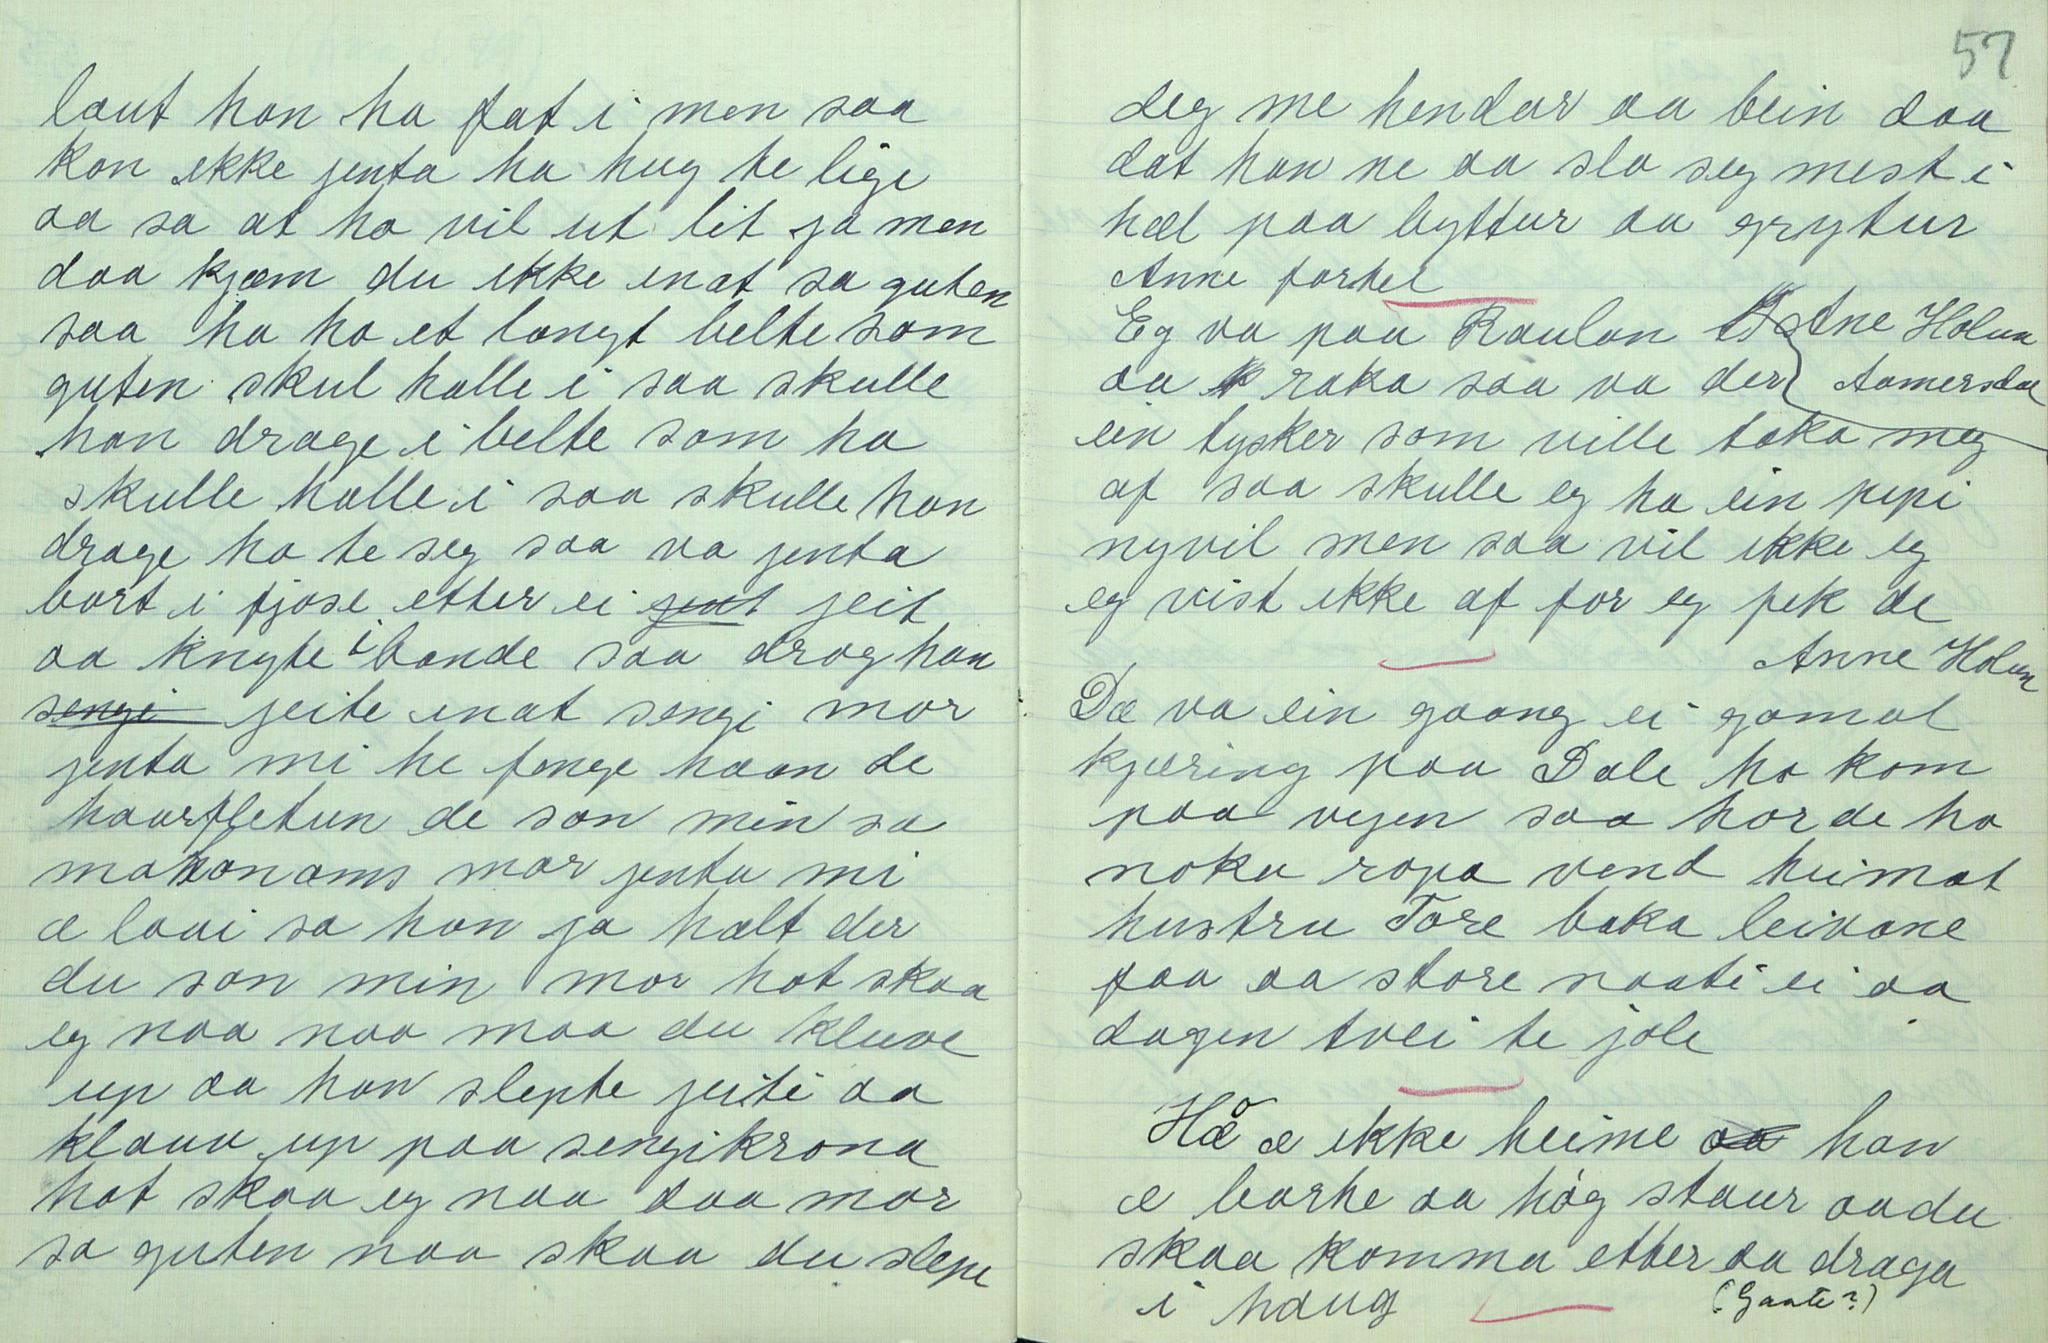 laut han ha fat i men saa
kan ikke jenta ha hug te lige
aa sa at ho vil ut lit ja men
daa kjæm du ikke inat sa guten
saa ha ho et langt belte som
guten skul halle i saa skulle
han drage i belte som ho
skulle halle i saa skulle han
drage ho te seg saa va jenta
bort i fjøse etter ei jent jeit
aa knyte i bande saa drog han
sengi jeite inat sengi mor
jenta mi he fenge haan de
haarfletun de son min sa
mor jenta mi
æ laai sa han ja hælt der
du son min mor hot skaa
eg naa naa maa du kluve
up aa han slepte jeiti aa
klauv up paa sengikrona
hot skaa eg naa daa mor
sa guten naa skaa du slepe
57
deg me hendar aa bein daa
dat han ne aa slo seg mest i
hæl paa byttur aa grytur
Anne fortel
Eg va paa Raulan Ane Holun
aa raka saa va der Aamersdal
ein tysker som ville taka meg
af saa skulle eg ha ein pipi
nyvil men saa vil ikke eg
eg vist ikke af for eg fek de
Anne Holun
Dæ va ein gaang ei gamal
kjæring paa Dale ho kom
paa vejen saa horde ho
noka ropa vend heimat
hustru Tore baka leivane
faa aa store naati ei aa
dagen tvei te jole
Hå æ ikke heime aa han
æ barke aa høg staur aa du
skaa komma etter aa draga
i haug (Gaate?)